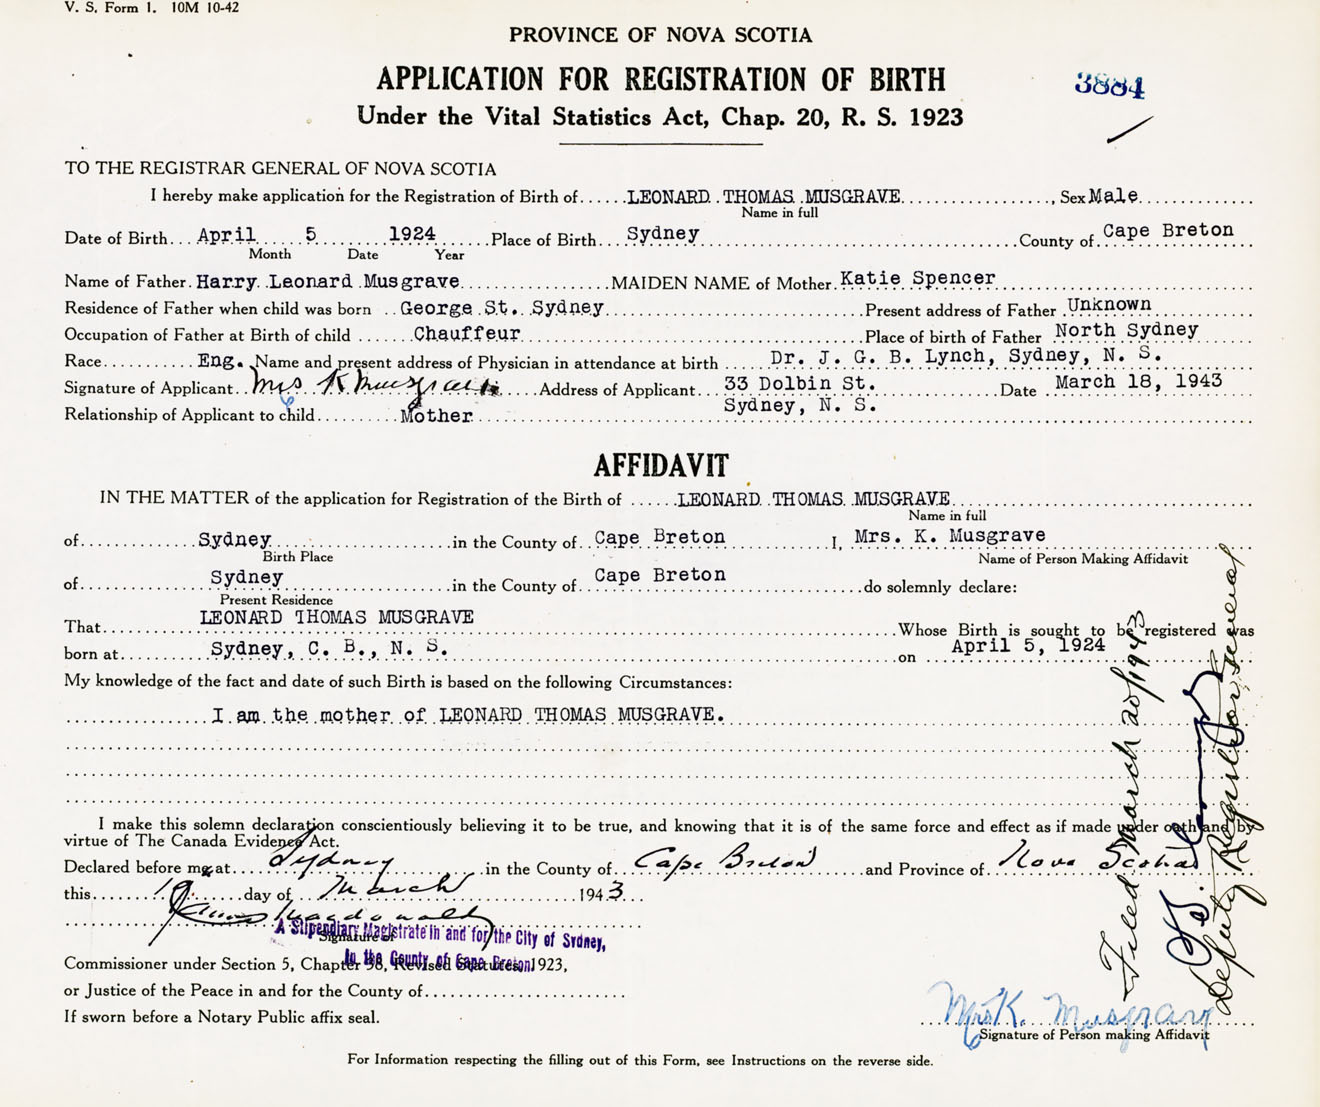 V. S. Form 1. 10M 10-42
PROVINCE OF NOVA SCOTIA
APPLICATION FOR REGISTRATION OF BIRTH
3884
Under the Vital Statistics Act, Chap. 20, R. S. 1923
TO THE REGISTRAR GENERAL OF NOVA SCOTIA
I hereby make application for the Registration of Birth of LEONARD THOMAS MUSGRAVE, Sex Male
Name in full
Date of Birth April 5 1924 Place of Birth Sydney County of Cape Breton
Month Date Year
Name of Father Harry Leonard Musgrave MAIDEN NAME of Mother Katie Spencer
Residence of Father when child was born George St. Sydney Present address of Father Unknown
Occupation of Father at Birth of child Chauffeur Place of birth of Father North Sydney
Race Eng. Name and present address of Physician in attendance at birth Dr. J. G. B. Lynch, Sydney, N. S.
Signature of Applicant Mrs K Musgrave Address of Applicant 33 Dolbin St. Date March 18, 1943
Sydney, N. S.
Relationship of Applicant to child Mother
AFFIDAVIT
IN THE MATTER of the application for Registration of the Birth of LEONARD THOMAS MUSGRAVE
Name in full
of Sydney in the County of Cape Breton I, Mrs. K. Musgrave
Birth Place Name of Person Making Affidavit
of Sydney in the County of Cape Breton do solemnly declare:
Present Residence
That LEONARD THOMAS MUSGRAVE Whose Birth is sought to be registered was
born at Sydney, C. B., N. S. on April 5, 1924
My knowledge of the fact and date of such Birth is based on the following Circumstances:
I am the mother of LEONARD THOMAS MUSGRAVE.
I make this solemn declaration conscientiously believing it to be true, and knowing that it is of the same force and effect as if made under oath and by
virtue of The Canada Evidence Act.
Declared before me at Sydney in the County of Cape Breton and Province of Nova Scotia
this 19 day of March 1943
Macdonald
A Stipendiary Magistrate in and for the City of Sydney,
Signature of
In the County of Cape Breton.
Commissioner under Section 5, Chapter 38, Revised Statutes, 1923,
or Justice of the Peace in and for the County of
If sworn before a Notary Public affix seal.
Mrs K. Musgrave
Signature of Person making Affidavit
For Information respecting the filling out of this Form, see Instructions on the reverse side.
Filed March 20/1943
Deputy Registrar General